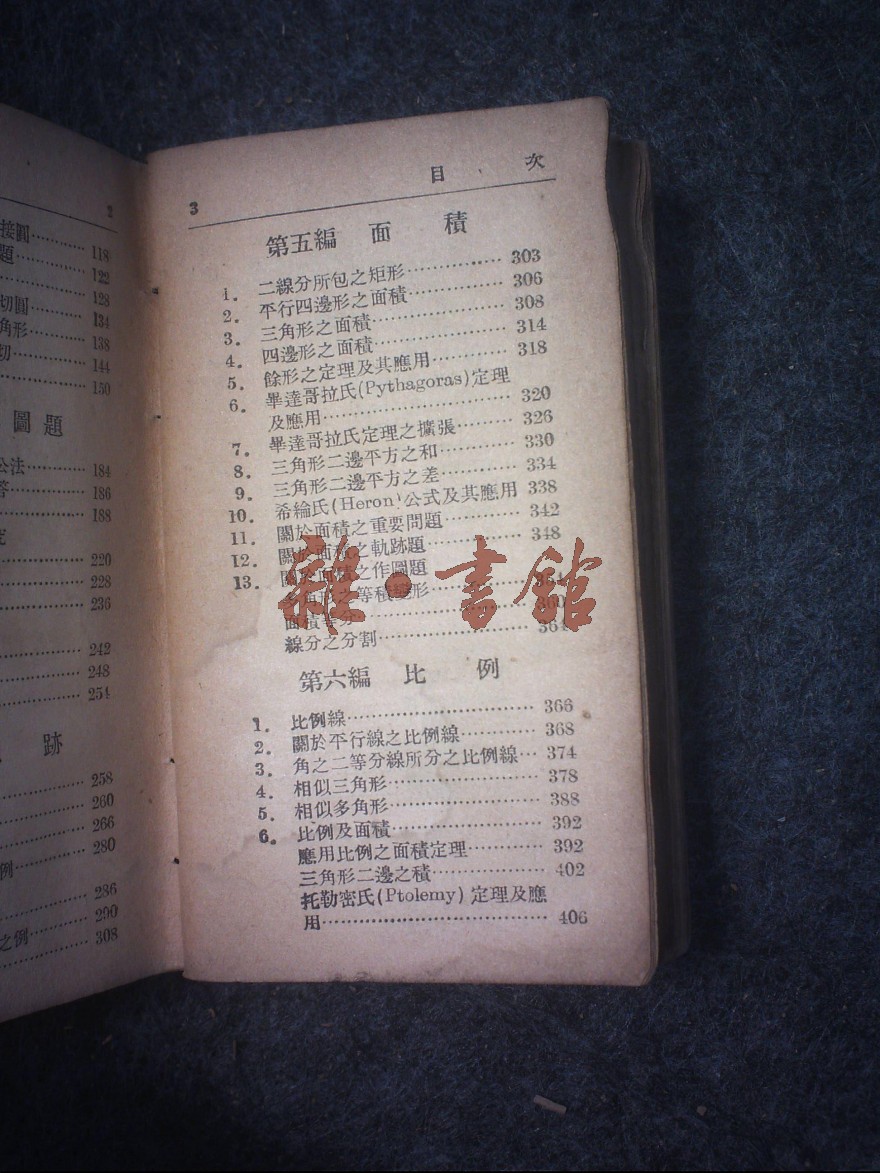 2
接圓 118
題 122
128
切圓 134
角形 138
切 144
150
圖題
公法 184
186
188
220
228
236
242
248
254
跡
258
260
266
280
例
286
290
之例 308
3 目次
第五編 面積
1. 二線分所包之矩形 303
2. 平行四邊形之面積 306
3. 三角形之面積 308
4. 四邊形之面積 314
5. 餘形之定理及其應用 318
6. 畢達哥拉氏(Pythagoras)定理
及應用 320
7. 畢達哥拉氏定理之擴張 326
8. 三角形二邊平方之和 330
9. 三角形二邊平方之差 334
10. 希綸氏(Heron)公式及其應用 338
11. 關於面積之重要問題 342
12. 關於面積之軌跡題 348
13. 關於面積之作圖題
之等積變形
面積 360
線分之分割 364
雜·書館
第六編 比例
1. 比例線 366
2. 關於平行線之比例線 368
3. 角之二等分線所分之比例線 374
4. 相似三角形 378
5. 相似多角形 388
6. 比例及面積 392
應用比例之面積定理 392
三角形二邊之積 402
托勒密氏(Ptolemy)定理及應
用 406